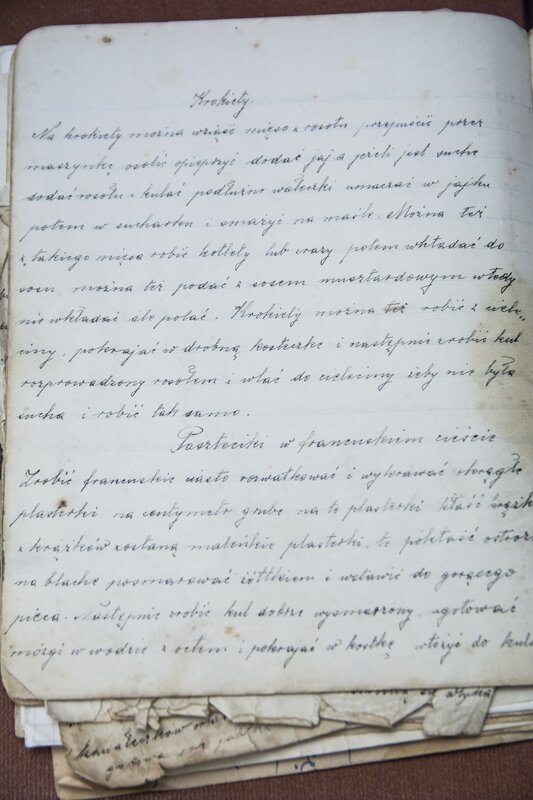 Krokiety.
Na krokiety można wziąść mięso z rosołu przepuścić przez
maszynkę osolić opieprzyć dodać jaja jeżeli jest suche
dodać rosołu i kulać podłużne wałeczki umaczać w jajku
potem w sucharku i smażyć na maśle. Można też
z takiego mięsa robić kotlety lub zrazy potem wkładać do
sosu można też podać z sosem musztardowym wtedy
nie wkładać ale polać. Krokiety można też robić z cielę-
ciny, pokrajać w drobną kosteczkę i następnie zrobić kul
rozprowadzony rosołem i wlać do cielęciny żeby nie była
sucha i robić tak samo.
Paszteciki w francuskiem cieście
Zrobić francuskie ciasto rozwałkować i wykrawać okrągłe
plasterki na centymetr grube na te plasterki kłaść krążk
z krążków zostaną maleńkie plasterki, te poletość ostroż
na blachę posmarować żółtkiem i wstawić do gorącego
pieca. Następnie zrobić kul dobrze wysmarzony, ugotować
mózgi w wodzie z octem i pokrajać w kostkę włożyć do kulu